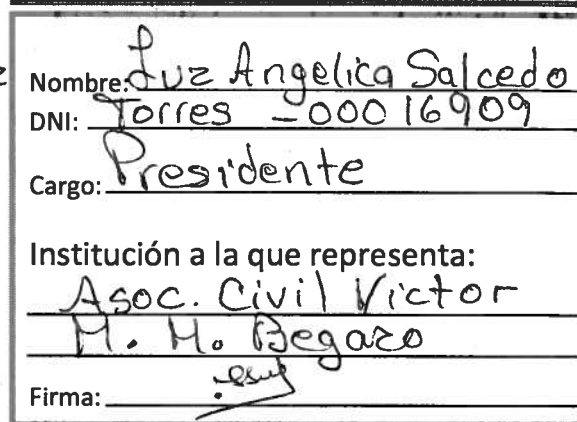 Nombre: Luz Angelica Salcedo
DNI: Torres - 00016909
Cargo: Presidente
Institución a la que representa:
Asoc. Civil Victor
M. H. Begazo
Firma: